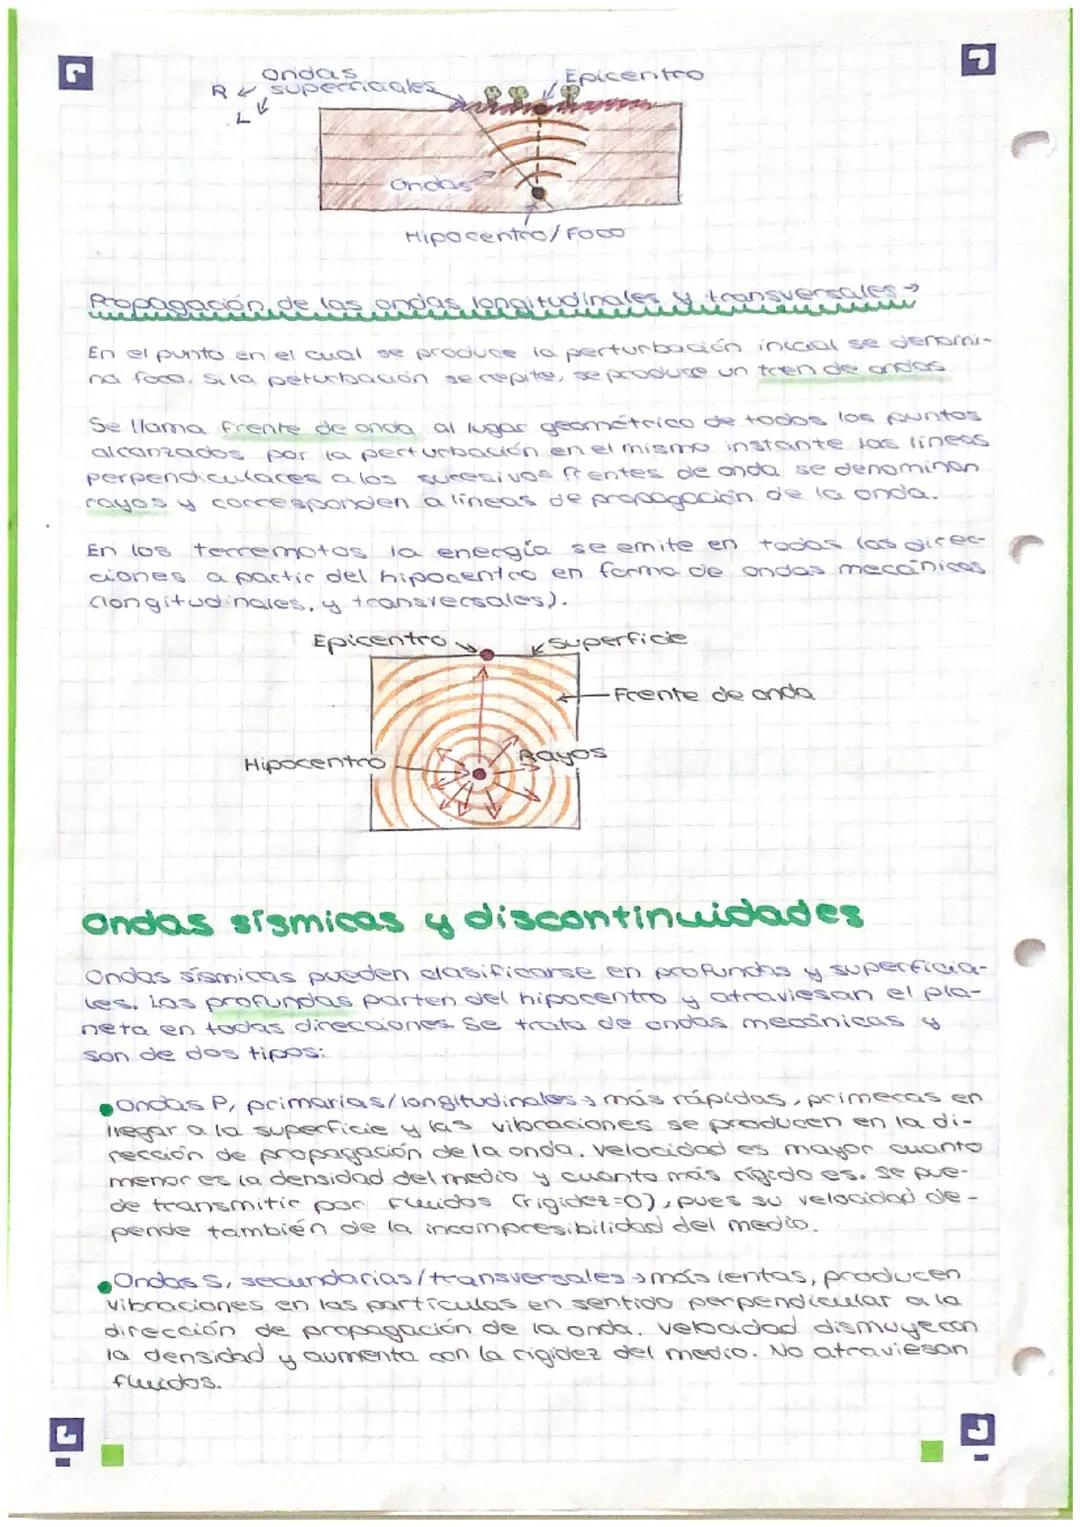 Ondas
R superficiales
Epicentro
L
Ondas
Hipocentro/Foco
Propagación de las ondas longitudinales y transversales→
En el punto en el cual se produce la perturbación inicial se denomi-
na foco. Si la peturbación se repite, se produce un tren de ondas
Se llama frente de onda al lugar geométrico de todos los puntos
alcanzados por la perturbación en el mismo instante las líneas
perpendiculares a los sucesivos frentes de onda se denominan
rayos y corresponden a líneas de propagación de la onda.
En los terremotos la energía se emite en todas las direc-
ciones a partir del hipocentro en forma de ondas mecánicas
(longitudinales, y transversales).
Epicentro
superficie
Frente de onda
Hipocentro
Rayos
Ondas sísmicas y discontinuidades
Ondas sísmicas pueden clasificarse en profundas y superficia-
les. Las profundas parten del hipocentro y atraviesan el pla-
neta en todas direcciones. Se trata de ondas mecánicas y
son de dos tipos:
Ondas P, primarias/longitudinales → más rápidas, primeras en
llegar a la superficie y las vibraciones se producen en la di-
rección de propagación de la onda. Velocidad es mayor cuanto
menor es la densidad del medio y cuanto más rígido es. Se pue-
de transmitir por fluidos (rigidez=0), pues su velocidad de-
pende también de la incompresibilidad del medio.
Ondas S, secundarias/transversales → más lentas, producen
vibraciones en las partículas en sentido perpendicular a la
dirección de propagación de la onda. Velocidad dismuye con
la densidad y aumenta con la rigidez del medio. No atraviesan
fluidos.